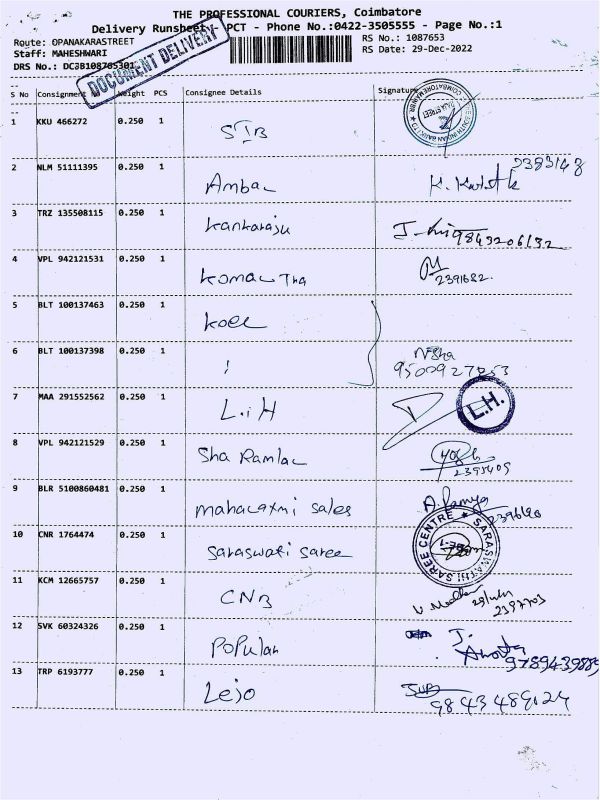 THE PROFESSIONAL COURIERS, Coimbatore
Delivery Runsheet - PCT - Phone No.:0422-3505555 - Page No.:1
Route: OPANAKARASTREET RS No.: 1087653
Staff: MAHESHWARI RS Date: 29-Dec-2022
DRS No.: DC3B108765301
DOCUMENT DELIVERY
S No Consignment Weight PCS Consignee Details Signature
1 KKU 466272 0.250 1 STB
2 NLM 51111395 0.250 1 Ambal 2383148
3 TRZ 135508115 0.250 1 Kankaraju 9843206132
4 VPL 942121531 0.250 1 Komal Tha 2391682.
5 BLT 100137463 0.250 1 Koel
6 BLT 100137398 0.250 1 Nisha
7 MAA 291552562 0.250 1 L.i.H L.H.
8 VPL 942121529 0.250 1 Sha Ramlal 2395409
9 BLR 5100860481 0.250 1 mahalaxmi sales A. Ramya 2396690
10 CNR 1764474 0.250 1 Saraswati saree SARASWATHI SAREE CENTRE
11 KCM 12665757 0.250 1 CNB
12 SVK 60324326 0.250 1 Popular J. 9789439889
13 TRP 6193777 0.250 1 Lejo